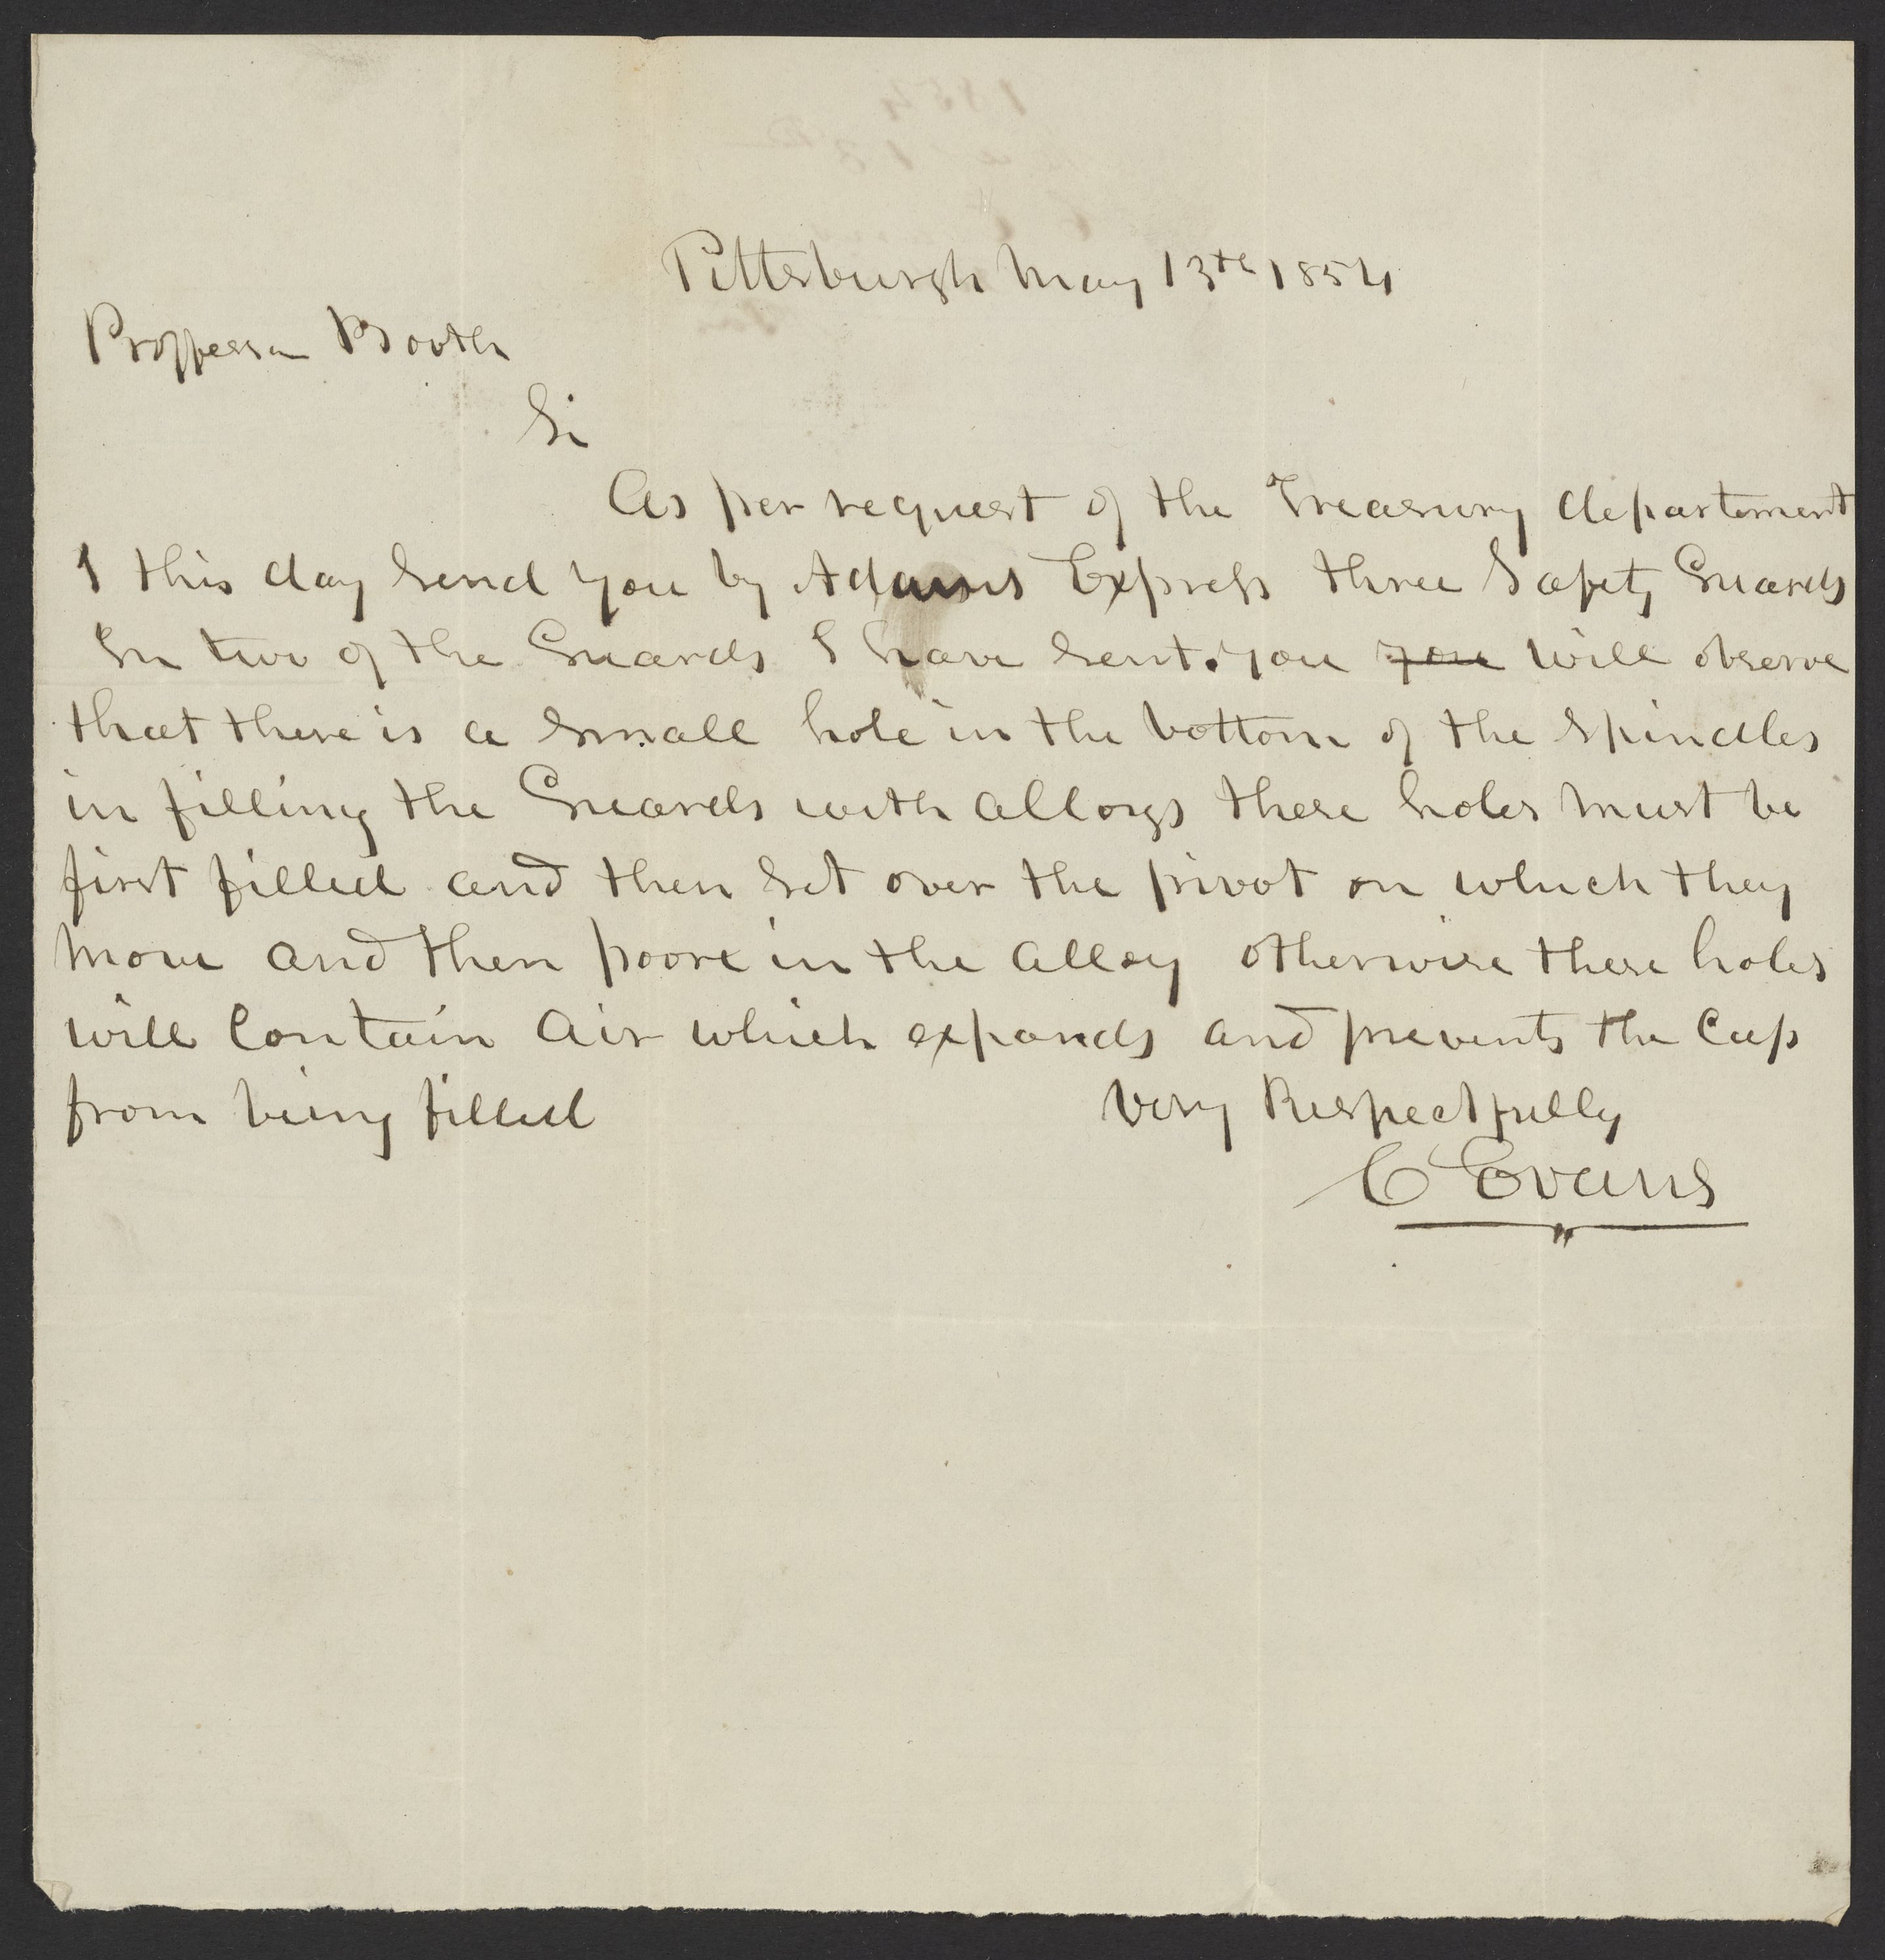 Pittsburgh May 13th 1854
Proffessor Booth
Sir
As per request of the Treasury departement
I this day send you by Adams Express three Safety Guards
In two of the Guards I have sent. you you will observe
that there is a small hole in the bottom of the spindles
in filling the Guards with alloys these holes must be
first filled and then set over the pivot on which they
move and then poore in the alloy otherwise these holes
will contain air which expands and prevents the Cup
from being filled
Very Respectfully
C Evans